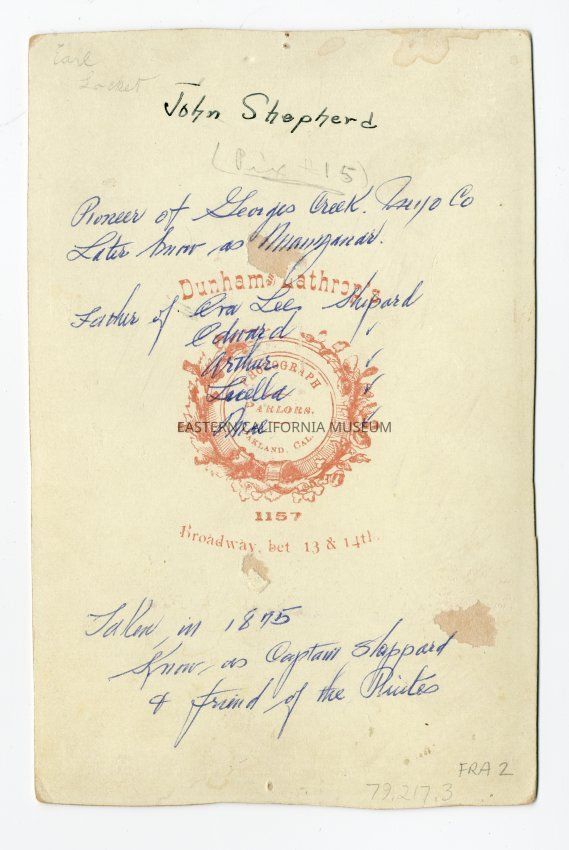 Earl
Locket
John Shepherd
(Pix #15)
Pioneer of Georges Creek. Inyo Co
Later know as Manzanar.
Dunham & Lathrop's
Father of Ora Lee Shepard
Edward "
Arthur "
Luella "
"
PHOTOGRAPH
PARLORS.
OAKLAND, CAL.
EASTERN CALIFORNIA MUSEUM
1157
Broadway, bet 13 & 14th.
Taken in 1875
Know as Captain Sheppard
& friend of the Piutes
FRA 2
79.217.3